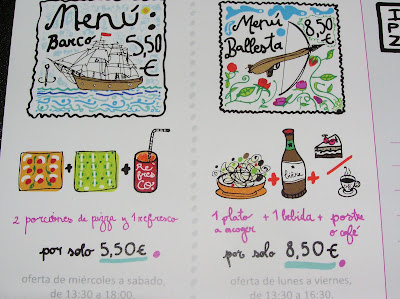 Menú:
Barco 5,50
€
Re
fres
CO!
2 porciones de pizza y 1 refresco
por solo 5,50€.
oferta de miércoles a sabado,
de 13:30 a 18:00.
Menú
Ballesta 8,50
€
1 plato + 1 bebida + postre
a escoger o café
por solo 8,50€.
oferta de lunes a viernes,
de 13:30 a 16:30.